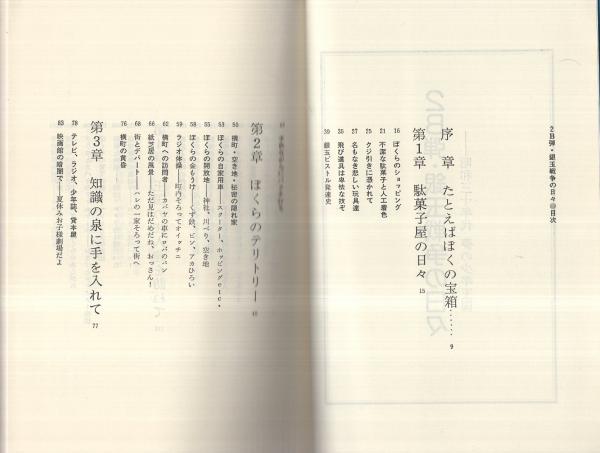 2B弾・銀玉戦争の日々◎目次
序　章　たとえばぼくの宝箱…… 9
第1章　駄菓子屋の日々 15
16 ぼくらのショッピング
21 不潔な駄菓子と人工着色
25 クジ引きに憑かれて
27 名もなき悲しい玩具達
35 飛び道具は卑怯な技ぞ
39 銀玉ピストル発達史
第2章　ぼくらのテリトリー
50 横町・空き地・秘密の隠れ家
53 ぼくらの自家用車――スクーター、ホッピングetc・
55 ぼくらの開放地――神社、川べり、空き地
58 ぼくらの金もうけ――くず鉄、ビン、アカひろい
59 ラジオ体操――町内そろってオイッチニ
62 横町への訪問者――カバヤの車にロバのパン
66 紙芝居の風景――ただ見はだめだね、おっさん！
68 街とデパート――ハレの一家そろって街へ
76 横町の黄昏
第3章　知識の泉に手を入れて 77
78 テレビ、ラジオ、少年誌、貸本屋
83 映画館の暗闇で――夏休みお子様劇場だよ